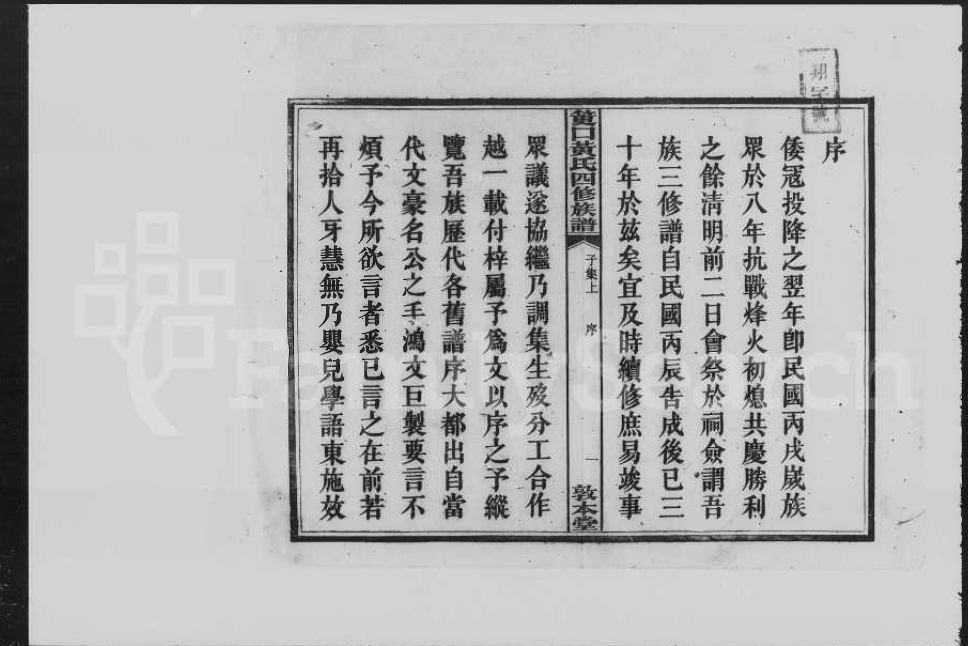 序
倭寇投降之翌年卽民國丙戌嵗族
眾於八年抗戰烽火初熄共慶勝利
之餘淸明前二日會祭於祠僉謂吾
族三修譜自民國丙辰告成後已三
十年於兹矣宜及時續修庶易竣事
黃氏四修族譜
子集上
序
一
敦本堂
眾議遂協繼乃調集生歿分工合作
越一載付梓屬予爲文以序之予縱
覽吾族歷代各舊譜序大都出自當
代文豪名公之手鴻文巨製要言不
煩予今所欲言者悉已言之在前若
再拾人牙慧無乃嬰兒學語東施效
FamilySearch